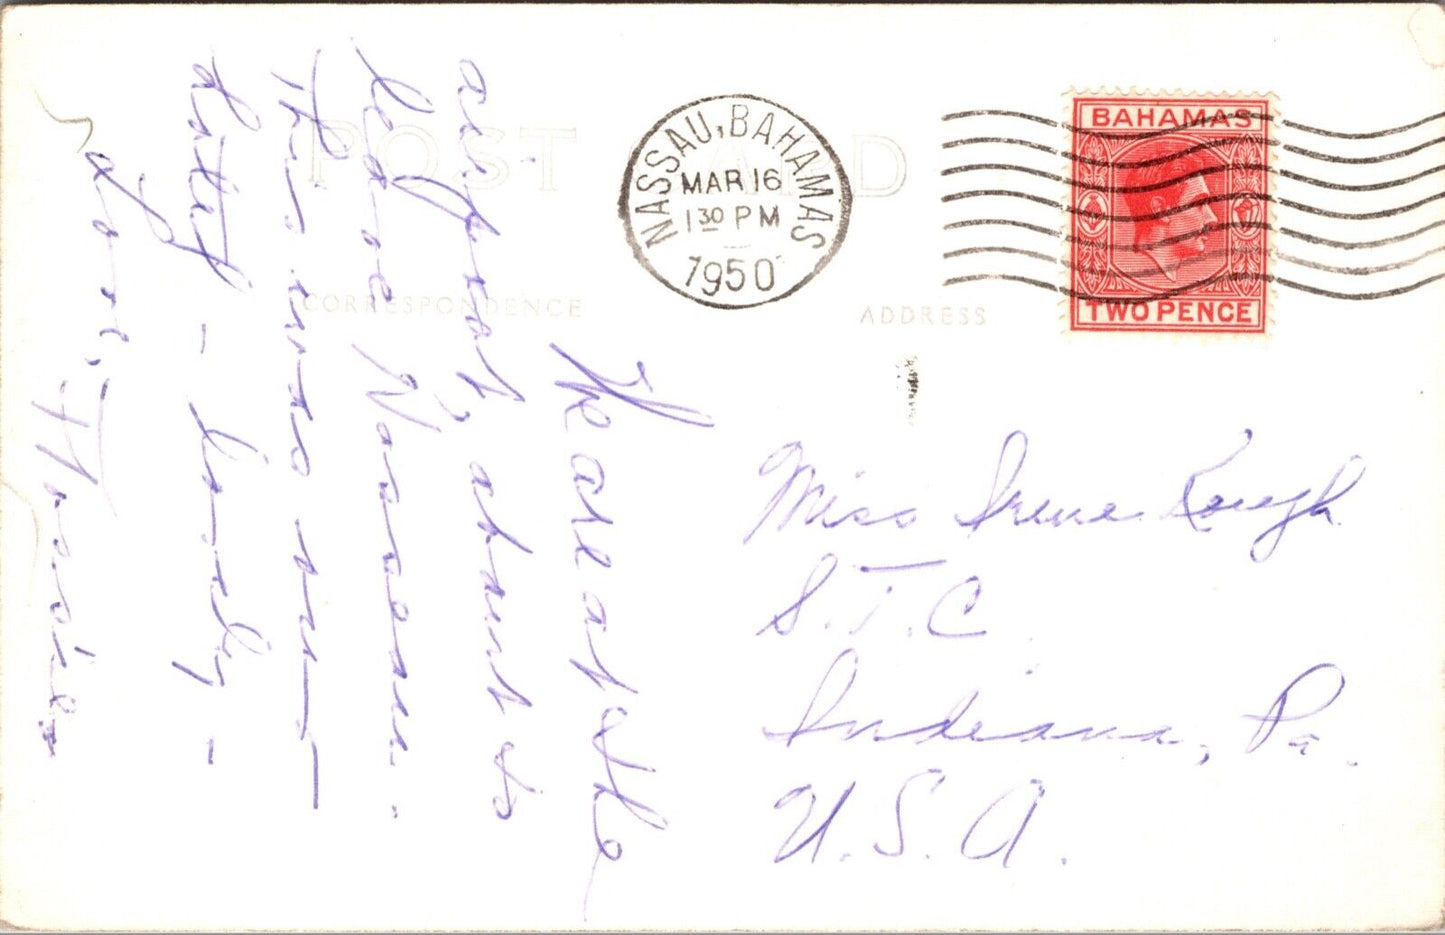 POST CARD
NASSAU, BAHAMAS
MAR 16
1 30 PM
1950
BAHAMAS
TWO PENCE
CORRESPONDENCE
ADDRESS
We are at the
airport, about to
leave Nassau.
This was our
last
Love,
Miss Irene
S.T.C.
Indiana, Pa.
U.S.A.